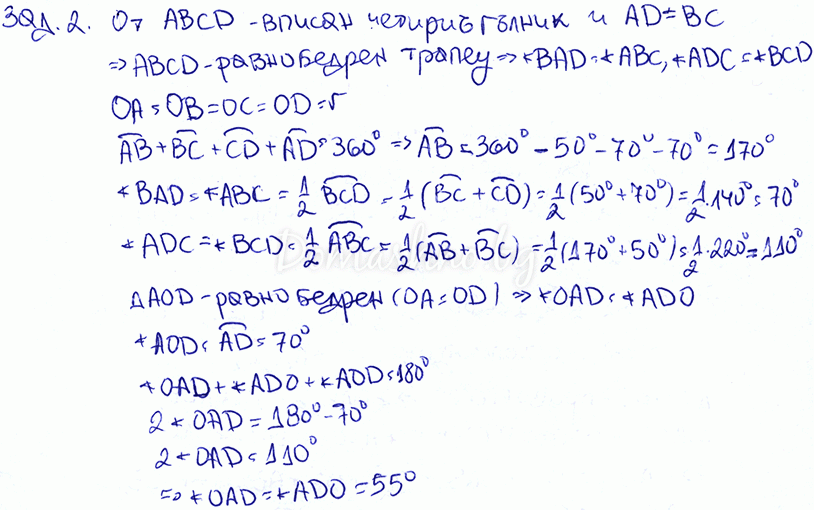 Зад. 2. От ABCD - вписан четириъгълник и AD = BC
=> ABCD - равнобедрен трапец => ∢BAD = ∢ABC, ∢ADC = ∢BCD
OA = OB = OC = OD = r
A͡B + B͡C + C͡D + A͡D = 360° => A͡B = 360° - 50° - 70° - 70° = 170°
∢BAD = ∢ABC = 1/2 B͡CD = 1/2 (B͡C + C͡D) = 1/2 (50° + 70°) = 1/2 . 140° = 70°
∢ADC = ∢BCD = 1/2 A͡BC = 1/2 (A͡B + B͡C) = 1/2 (170° + 50°) = 1/2 . 220° = 110°
ΔAOD - равнобедрен (OA = OD) => ∢OAD = ∢ADO
∢AOD = A͡D = 70°
∢OAD + ∢ADO + ∢AOD = 180°
2∢OAD = 180° - 70°
2∢OAD = 110°
=> ∢OAD = ∢ADO = 55°